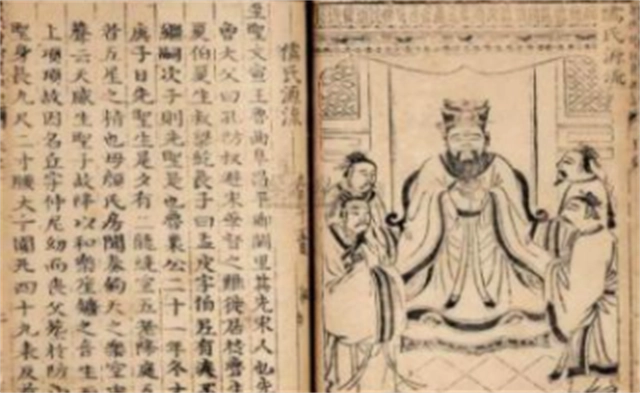 儒氏源流
儒氏源流
至聖文宣王魯曲阜昌平鄉闕里其先宋人也先
曾大父曰孔防叔避宋華督之難徙居於魯生
夏伯夏生叔梁紇長子曰孟皮字伯尼有疾不
繼嗣次子則先聖是也魯襄公二十一年冬十
庚子日先聖生是夕有二龍繞室五老降庭五
者五星之精也母顏氏房聞奏鈞天之樂空中
聲云天感生聖子故降以和樂笙鏞之音生而
上項項故因名丘字仲尼幼而喪父葬於防山
聖身長九尺二寸腰大十圍凡四十九表反